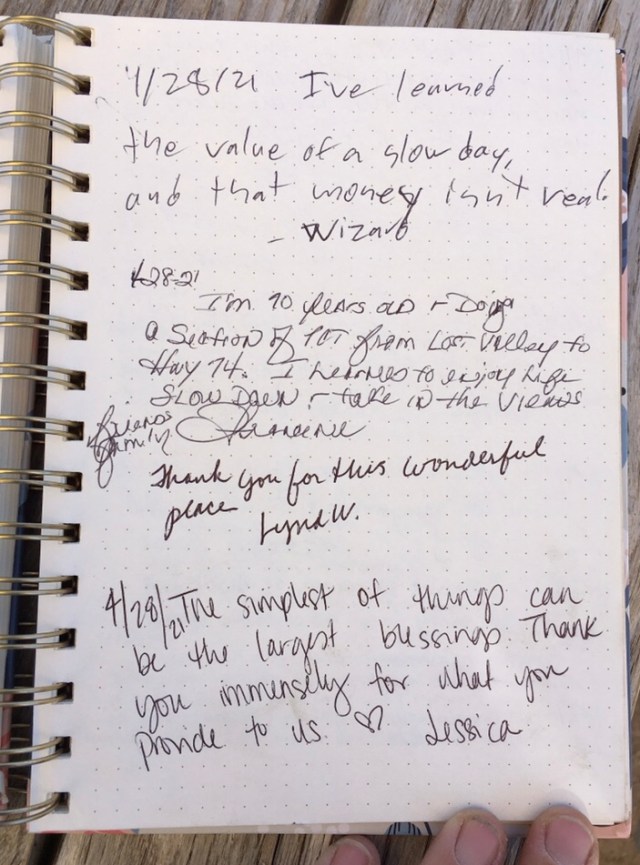 4/28/21 I've learned
the value of a slow day,
and that money isn't real.
- Wizard
4-28-21
I'm 70 years old + Doing
a Section of PCT from Lost Valley to
Hwy 74. I learned to enjoy life
Slow Down + take in the Views
friends
family
Thank you for this wonderful
place
Lynd W.
4/28/21 The simplest of things can
be the largest blessings. Thank
you immensely for what you
provide to us ♡ Jessica